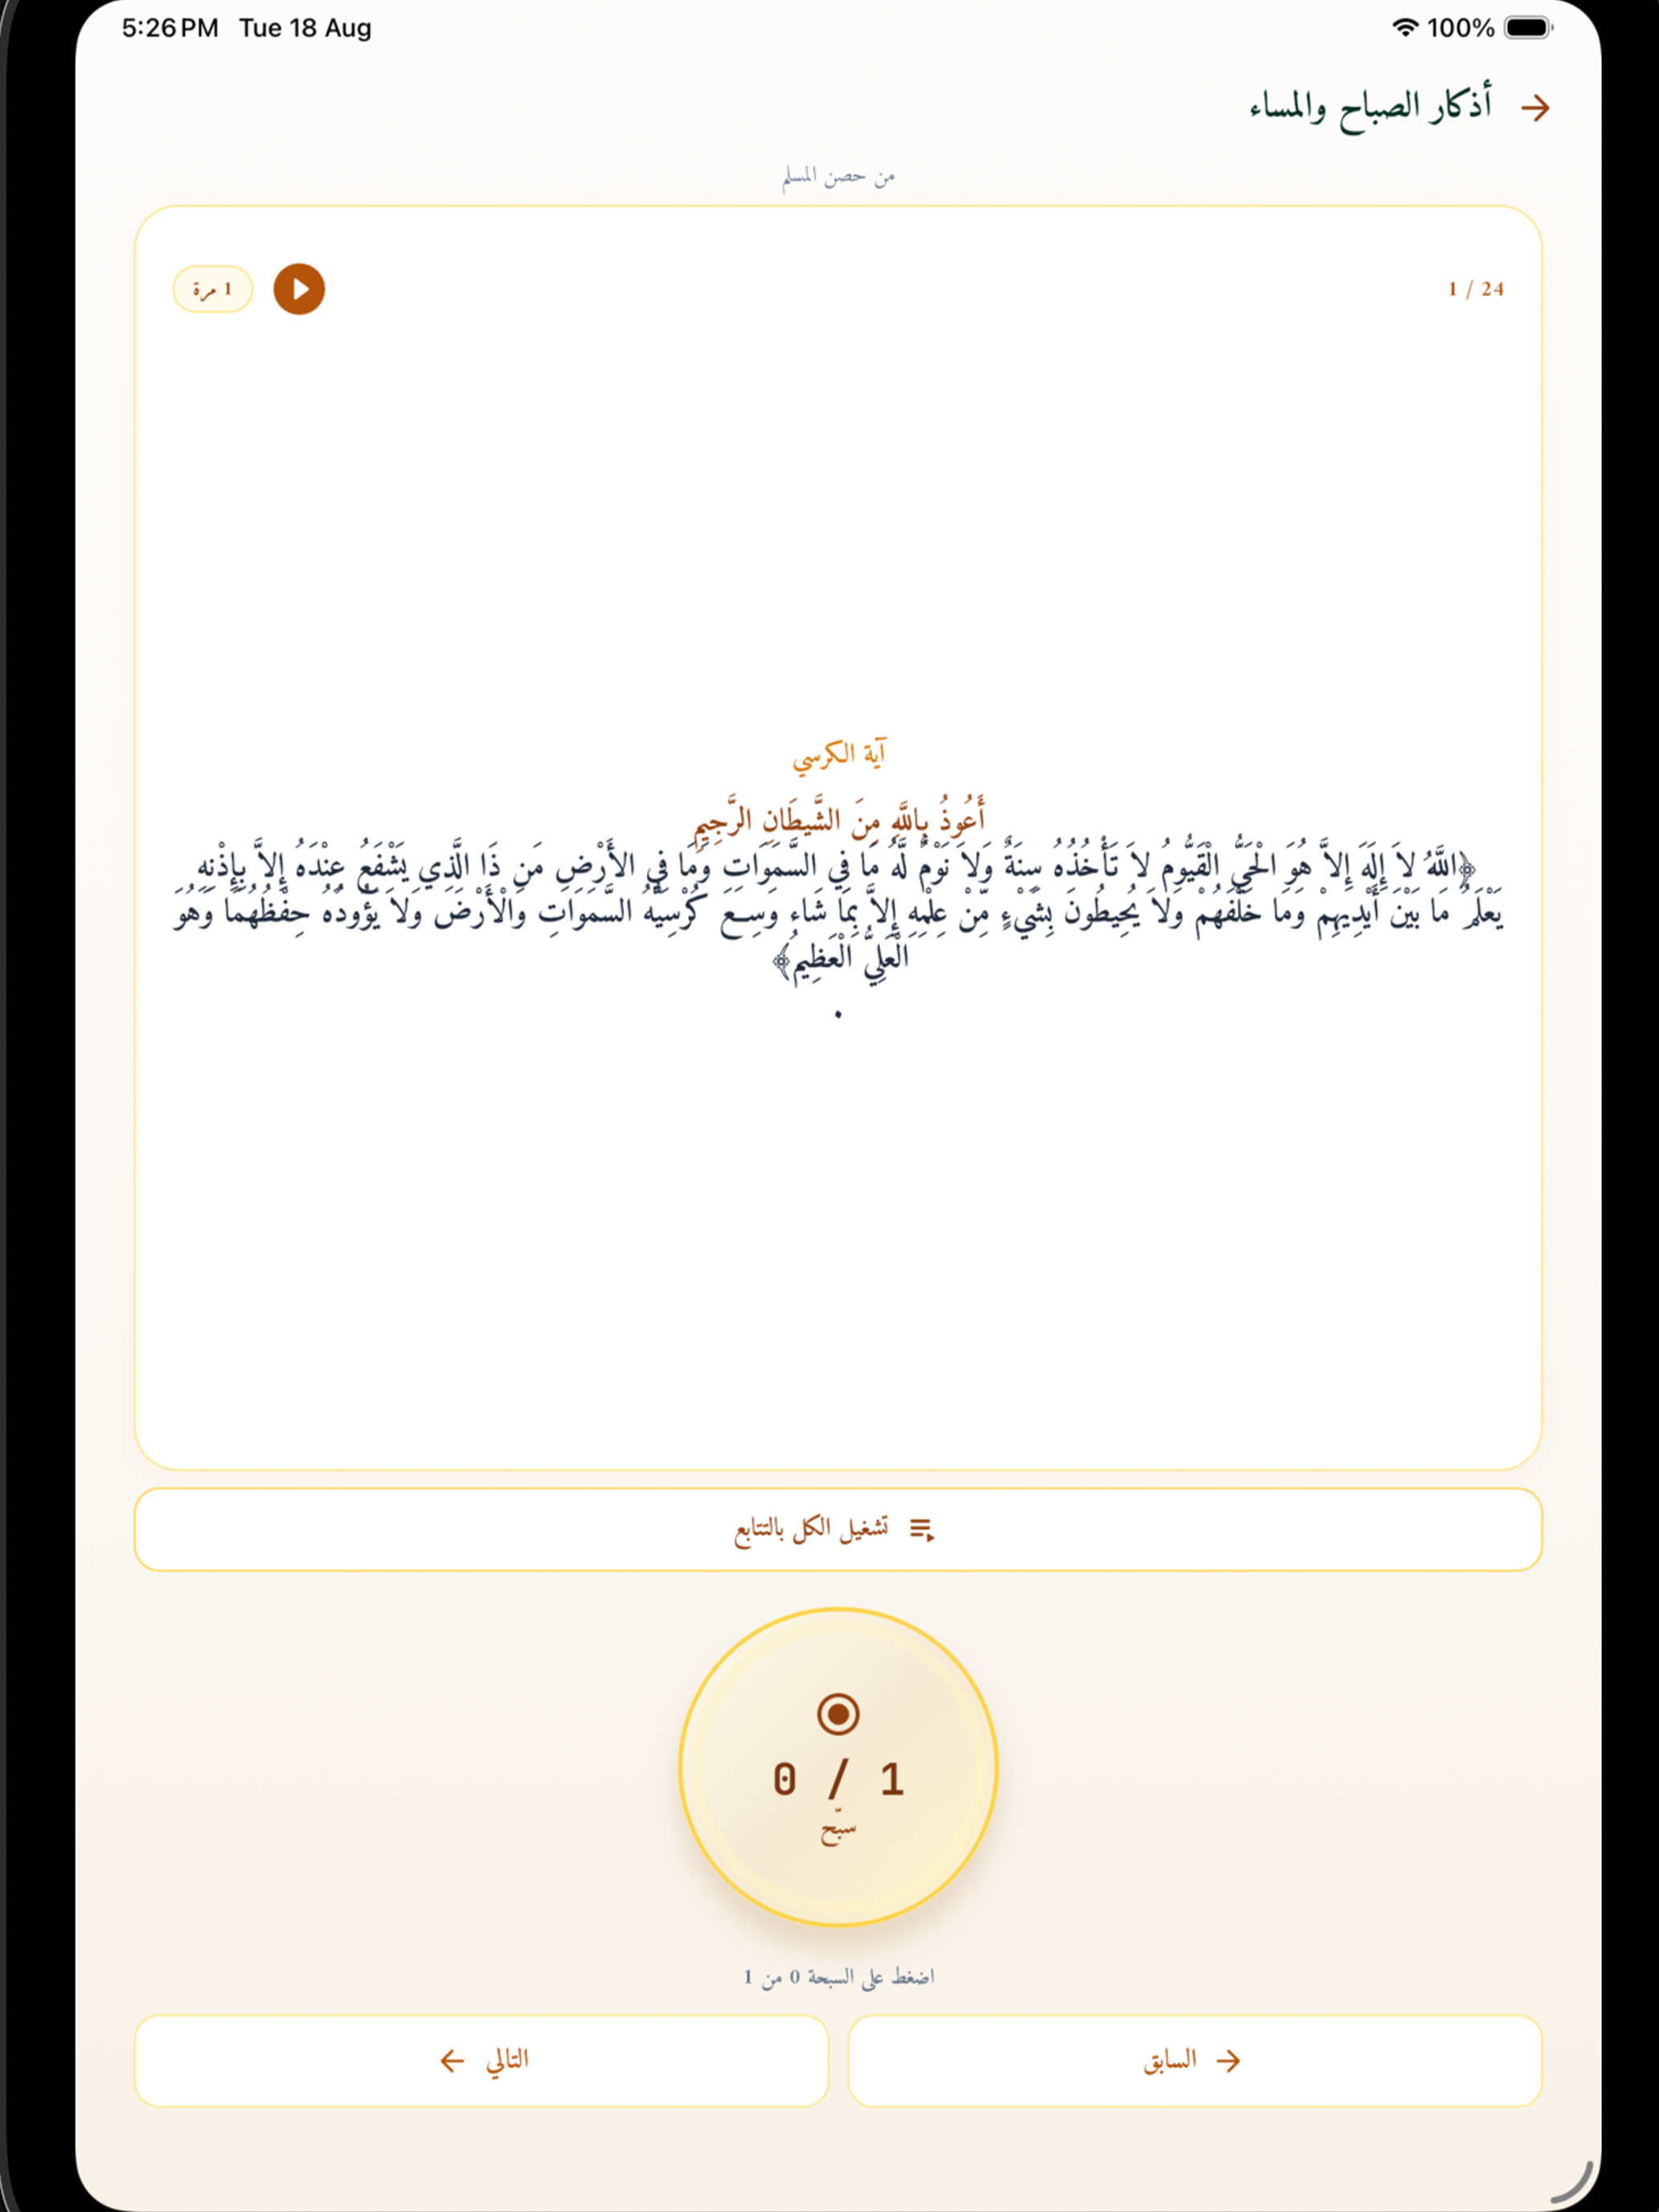 5:26 PM Tue 18 Aug 100%
أذكار الصباح والمساء
من حصن المسلم
1 / 24
1 مرة
آية الكرسي
أَعُوذُ بِاللَّهِ مِنَ الشَّيطَانِ الرَّجِيمِ
﴿اللَّهُ لاَ إِلَهَ إِلاَّ هُوَ الْحَيُّ الْقَيُّومُ لاَ تَأْخُذُهُ سِنَةٌ وَلاَ نَوْمٌ لَّهُ مَا فِي السَّمَوَاتِ وَمَا فِي الأَرْضِ مَن ذَا الَّذِي يَشْفَعُ عِنْدَهُ إِلاَّ بِإِذْنِهِ
يَعْلَمُ مَا بَيْنَ أَيْدِيهِمْ وَمَا خَلْفَهُمْ وَلاَ يُحِيطُونَ بِشَيْءٍ مِّنْ عِلْمِهِ إِلاَّ بِمَا شَاء وَسِـعَ كُرْسِيُّهُ السَّمَوَاتِ وَالْأَرْضَ وَلاَ يَؤُودُهُ حِفْظُهُمَا وَهُوَ
الْعَلِيُّ الْعَظِيمُ﴾
.
تشغيل الكل بالتتابع
0 / 1
سبّح
اضغط على السبحة 0 من 1
السابق
التالي